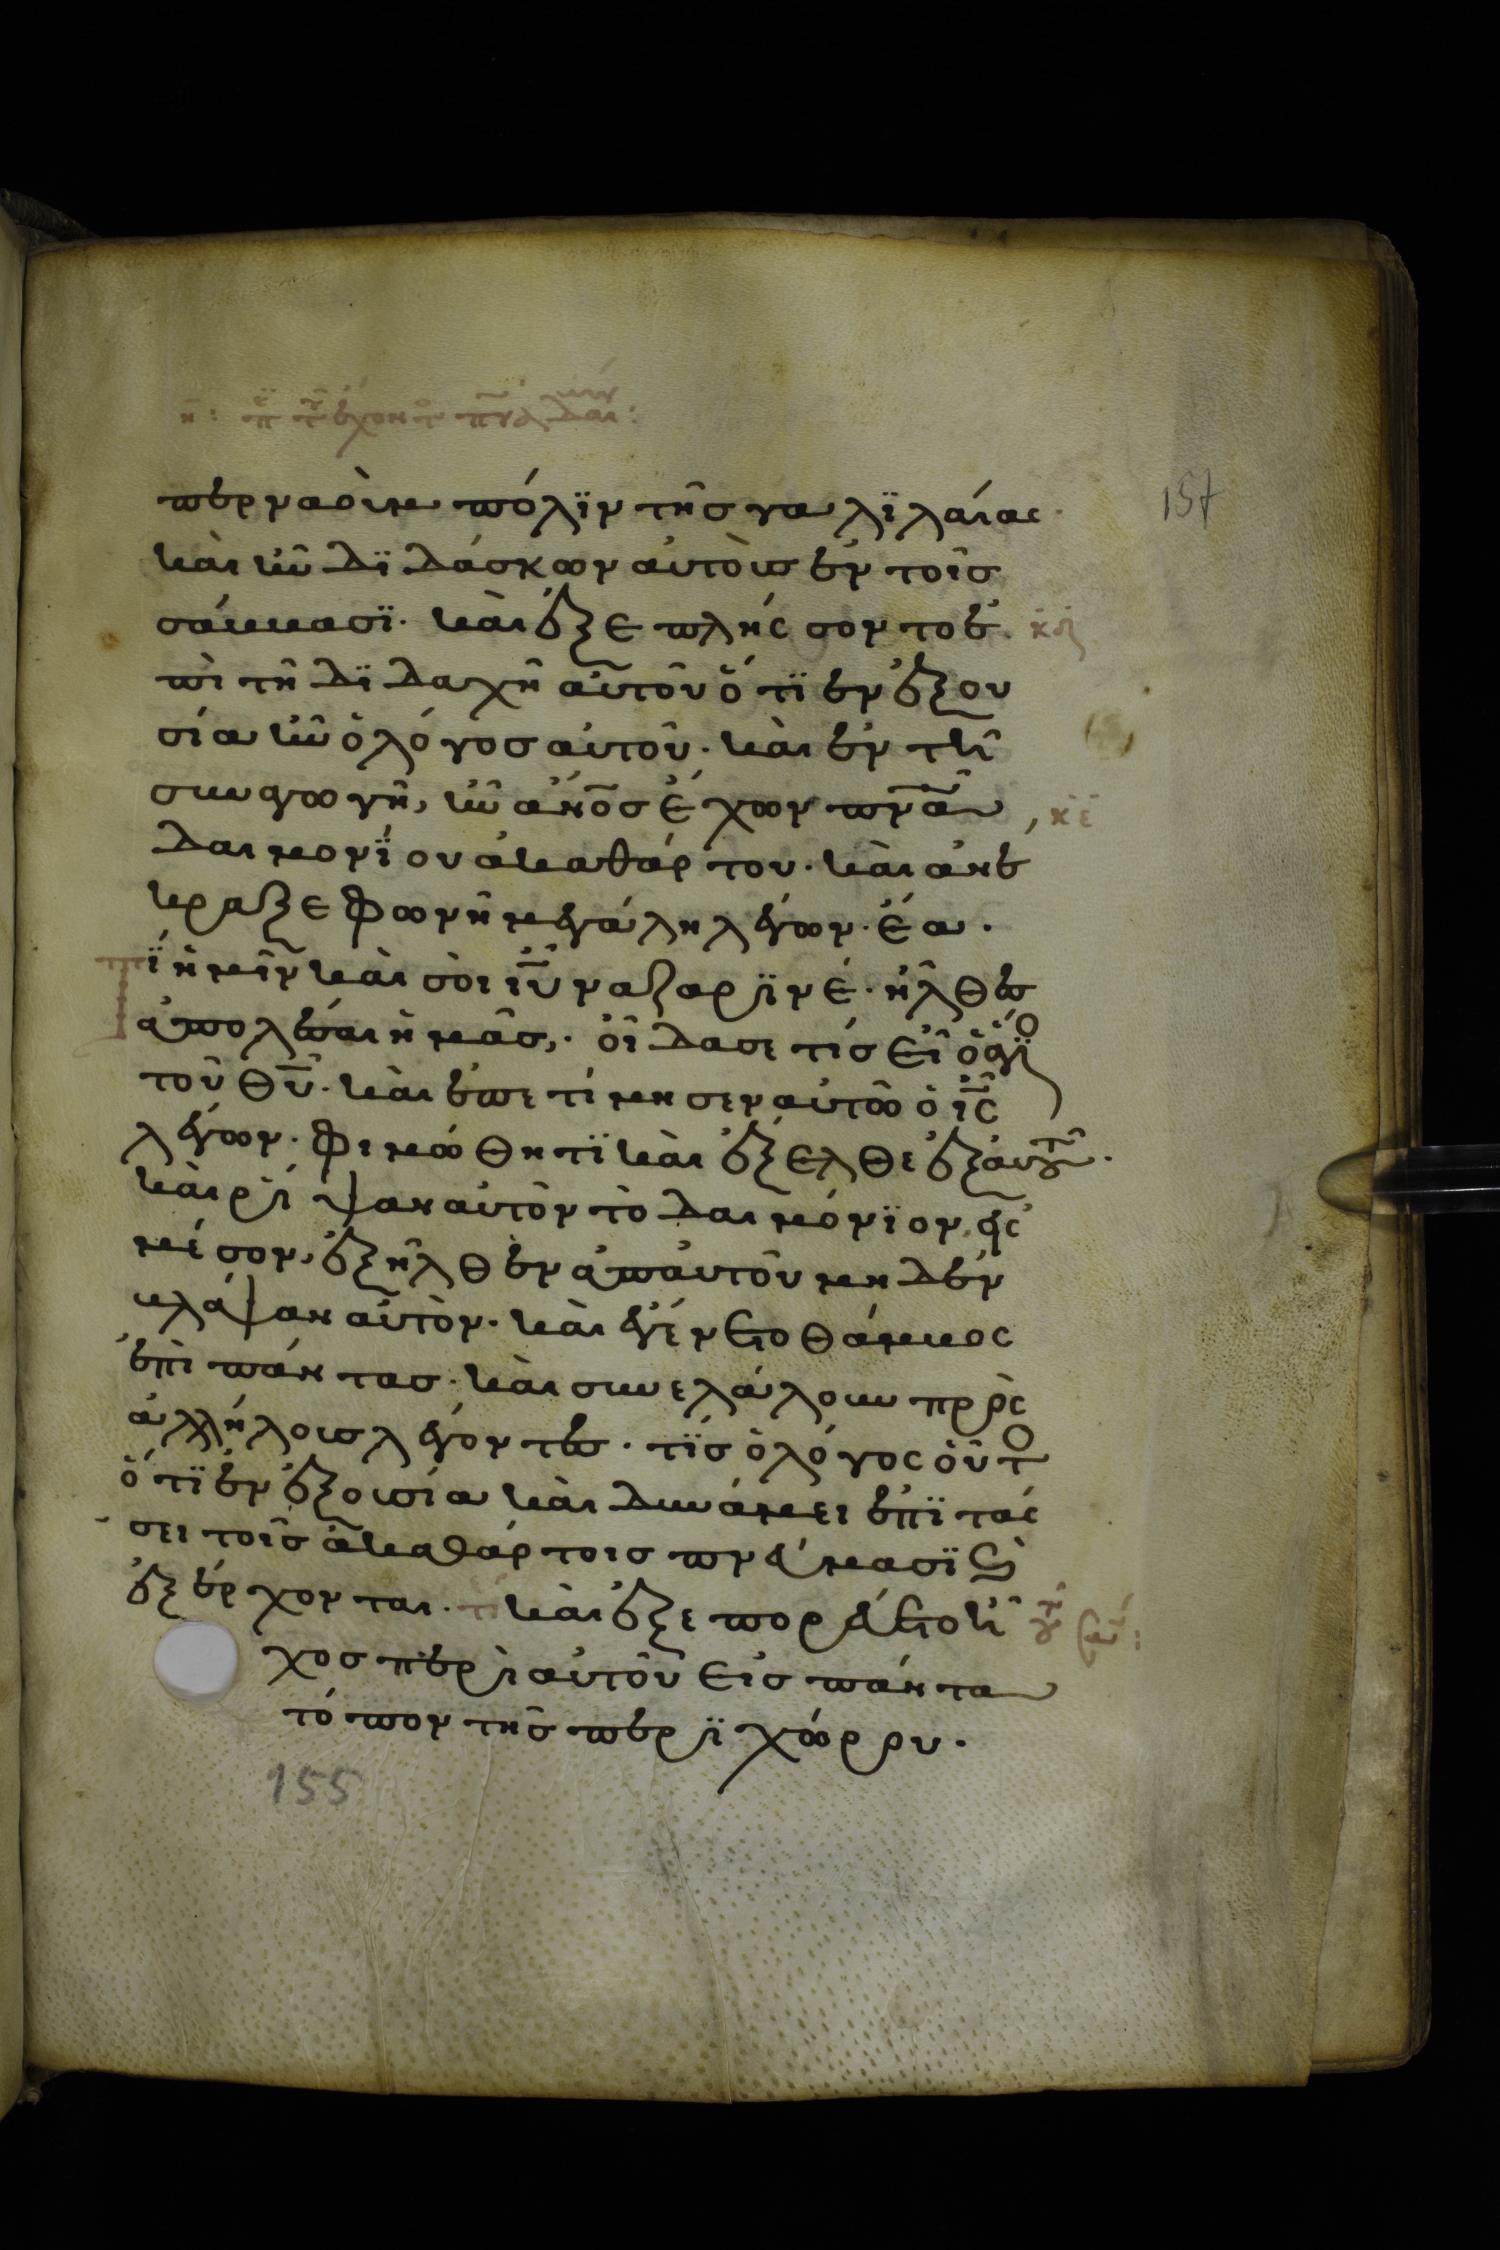 η: πε τοῦ ἔχοντο πνα δαιμονίου:
περναοὺμ πόλϊν τῆσ γαλϊλαίας·
καὶ ἦν δϊδάσκων αὐτοὺσ ἐν τοῖσ
σάββασϊ· καὶ ἐξεπλήσσοντο ἐ
πὶ τῆ δϊδαχῆ αὐτοῦ ὅτϊ ἐν ἐξου
σία ἦν ὁ λόγοσ αὐτοῦ· καὶ ἐν τῆ
συναγωγῆ, ἦν ἄνο̅σ ἔχων πν̅α
δαιμονϊου ἀκαθάρτου· καὶ ἀνέ
κραξε φωνῆ μεγάλη λέγων· ἔα·
Τϊ ἡμῖν καὶ σὸι ιυ̅ ναζαρϊνέ· ἦλθεσ
ἀπολέσαι ἡμᾶσ,· οἶδασε τίσ εἶ ὁ ἅγϊο
τοῦ θυ̅· καὶ ἐπετίμησεν αὐτῶ ὁ ις̅
λέγων· φιμώθητϊ καὶ ἔξελθε ἐξ αὐτοῦ·
καὶ ρίψαν αὐτὸν τὸ δαιμόνϊον εἰς
μέσον, ἐξῆλθεν ἀπ αὐτοῦ μηδὲν
βλάψαν αὐτὸν· καὶ ἐγένετο θάμβος
ἐπὶ πάντασ· καὶ συνελάλουν πρὸς
ἀλλήλουσ λέγοντεσ· τϊσ ὁ λόγος οὗτο
ὅτϊ ἐν ἐξουσία καὶ δυνάμει ἐπϊτάσ
σει τοῖσ ἀκαθάρτοισ πνεύμασϊ καὶ
ἐξέρχονται· τε καὶ ἐξεπορεύετο ἦ
χοσ περὶ αὐτοῦ εἰσ πάντα
τόπον τῆσ περϊχώρου·
κε
157
155